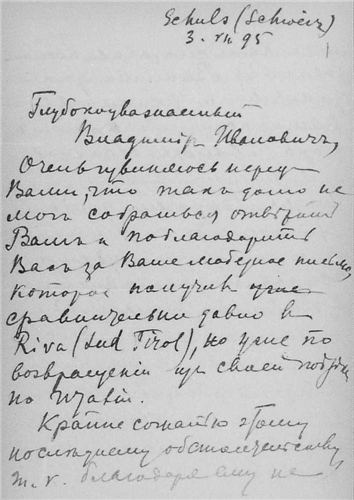 Schuls (Schweiz)
3. VII 95
Глубокоуважаемый
Владимір Ивановичъ,
Очень извиняюсь передъ
Вами, что такъ долго не
могъ собраться отвѣтить
Вамъ и поблагодарить
Васъ за Ваше любезное письмо,
которое получилъ уже
сравнительно давно въ
Riva (Sud Tirol), но уже по
возвращеніи изъ своей поѣздки
по Италіи.
Крайне сожалѣю этому
послѣднему обстоятельству,
т. к. благодаря ему не